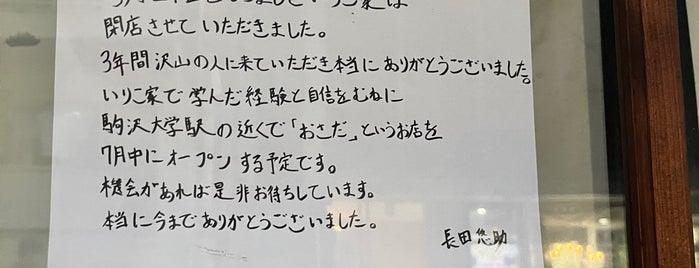 いりこ家は
閉店させていただきました。
3年間沢山の人に来ていただき本当にありがとうございました。
いりこ家で学んだ経験と自信をむねに
駒沢大学駅の近くで「おさだ」というお店を
7月中にオープンする予定です。
機会があれば是非お待ちしています。
本当に今までありがとうございました。
長田悠助